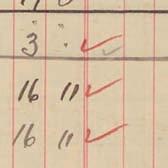 3 " ✓ ✓
16 11 ✓
16 11 ✓